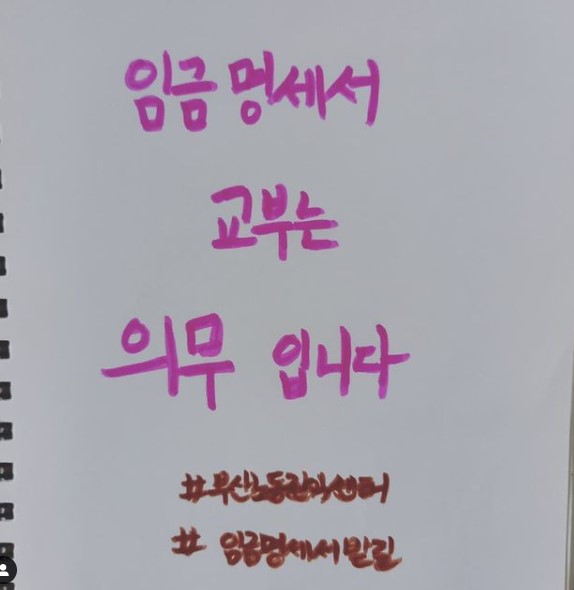 임금 명세서
교부는
의무 입니다
#부산노동권익센터
# 임금명세서 발길